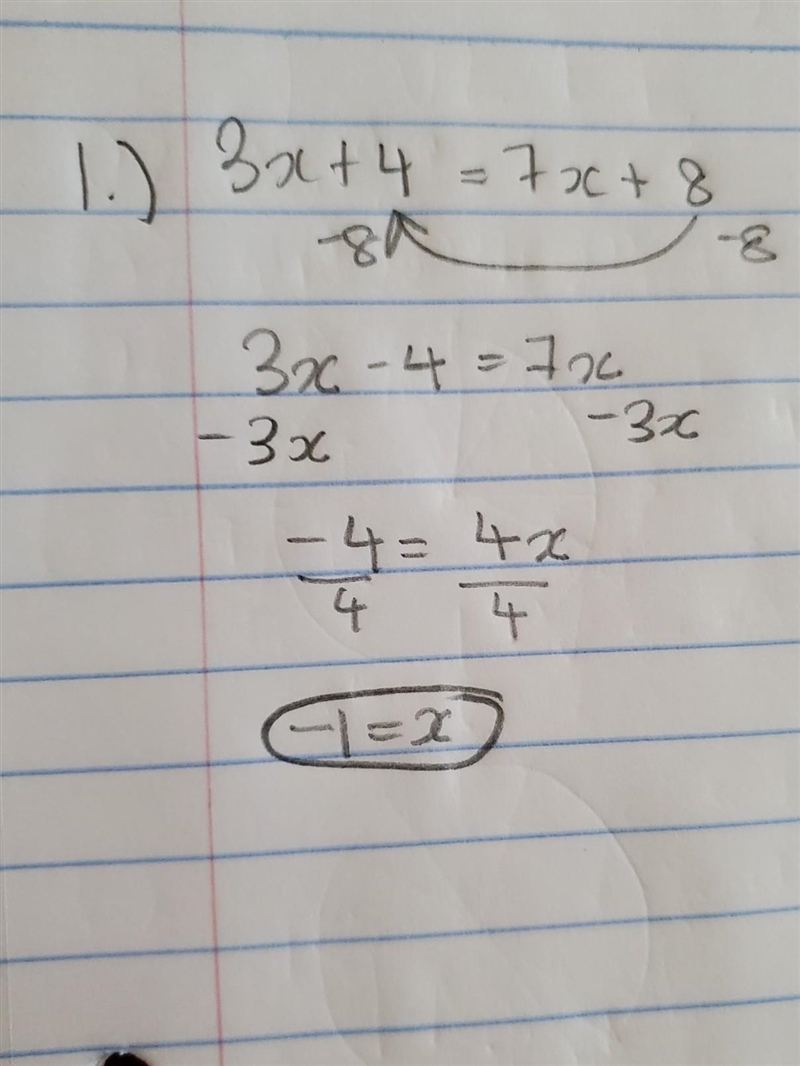 1.) 3x + 4 = 7x + 8
-8 -8
3x - 4 = 7x
-3x -3x
-4 = 4x
4 4
-1 = x